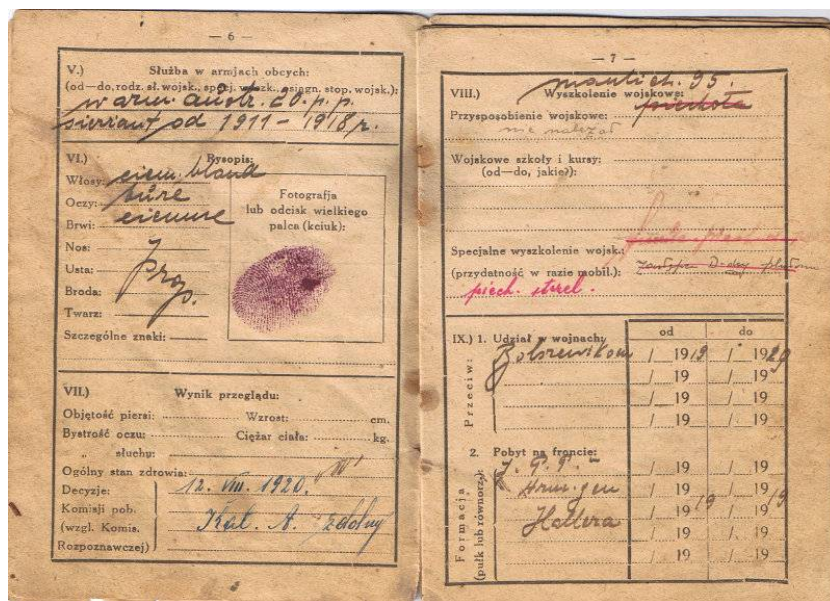 — 6 —
V.) Służba w armjach obcych:
(od—do, rodz. sł. wojsk., specj. wyszk., osiągn. stop. wojsk.):
w arm. austr. 20. p.p.
sierżant od 1911 – 1918 r.
VI.) Rysopis:
Włosy: ciem. blond
Oczy: bure
Brwi: ciemne
Nos:
Usta: prop.
Broda:
Twarz:
Szczególne znaki:
Fotografja
lub odcisk wielkiego
palca (kciuk):
VII.) Wynik przeglądu:
Objętość piersi: Wzrost: cm.
Bystrość oczu: Ciężar ciała: kg.
„ słuchu:
Ogólny stan zdrowia:
Decyzje: 12. VIII. 1920.
Komisji pob. Kat. A. zdolny
(wzgl. Komis.
Rozpoznawczej)
— 7 —
95.
VIII.) Wyszkolenie wojskowe: piechota
Przysposobienie wojskowe:
nie należał
Wojskowe szkoły i kursy:
(od—do, jakie?):
Specjalne wyszkolenie wojsk.:
(przydatność w razie mobil.): zastępca D-cy plutonu
piech. strzel.
IX.) 1. Udział w wojnach: od do
Przeciw:
Bolszewikom / 1919 / 1920
/ 19 / 19
/ 19 / 19
/ 19 / 19
2. Pobyt na froncie:
Formacja
(pułk lub równorz.):
/ 19 / 19
Arm. gen / 19 / 19
Hallera / 1919 / 1919
/ 19 / 19
/ 19 / 19